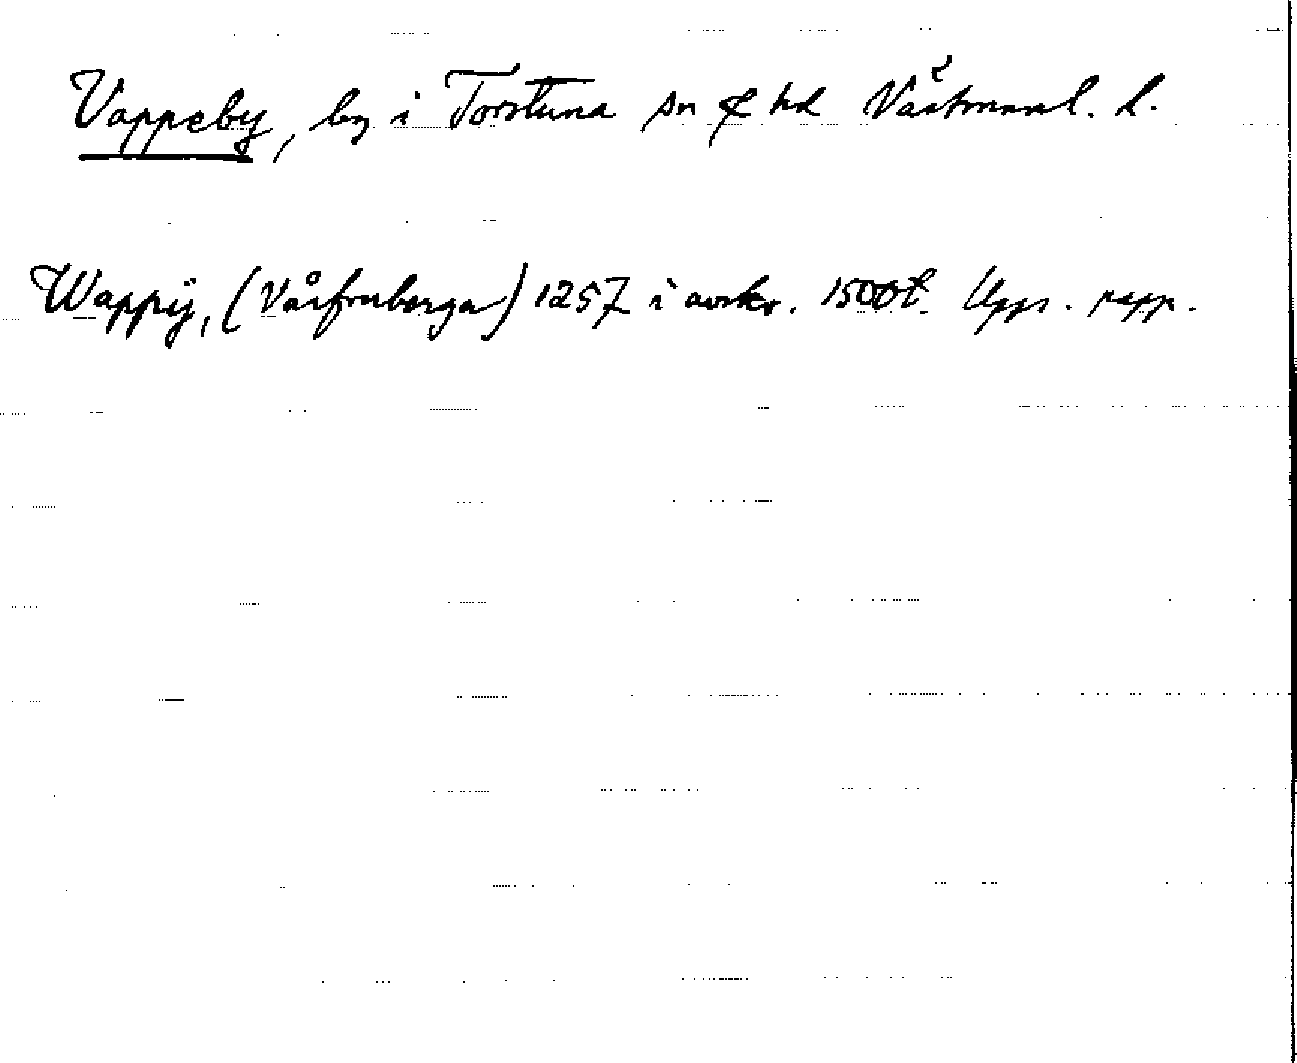 Vappeby, by i Torstuna sn & hd Västmanl. l.
Wappÿ, (Vårfruberga) 1257 i avskr. 1500t. Upps. papp.